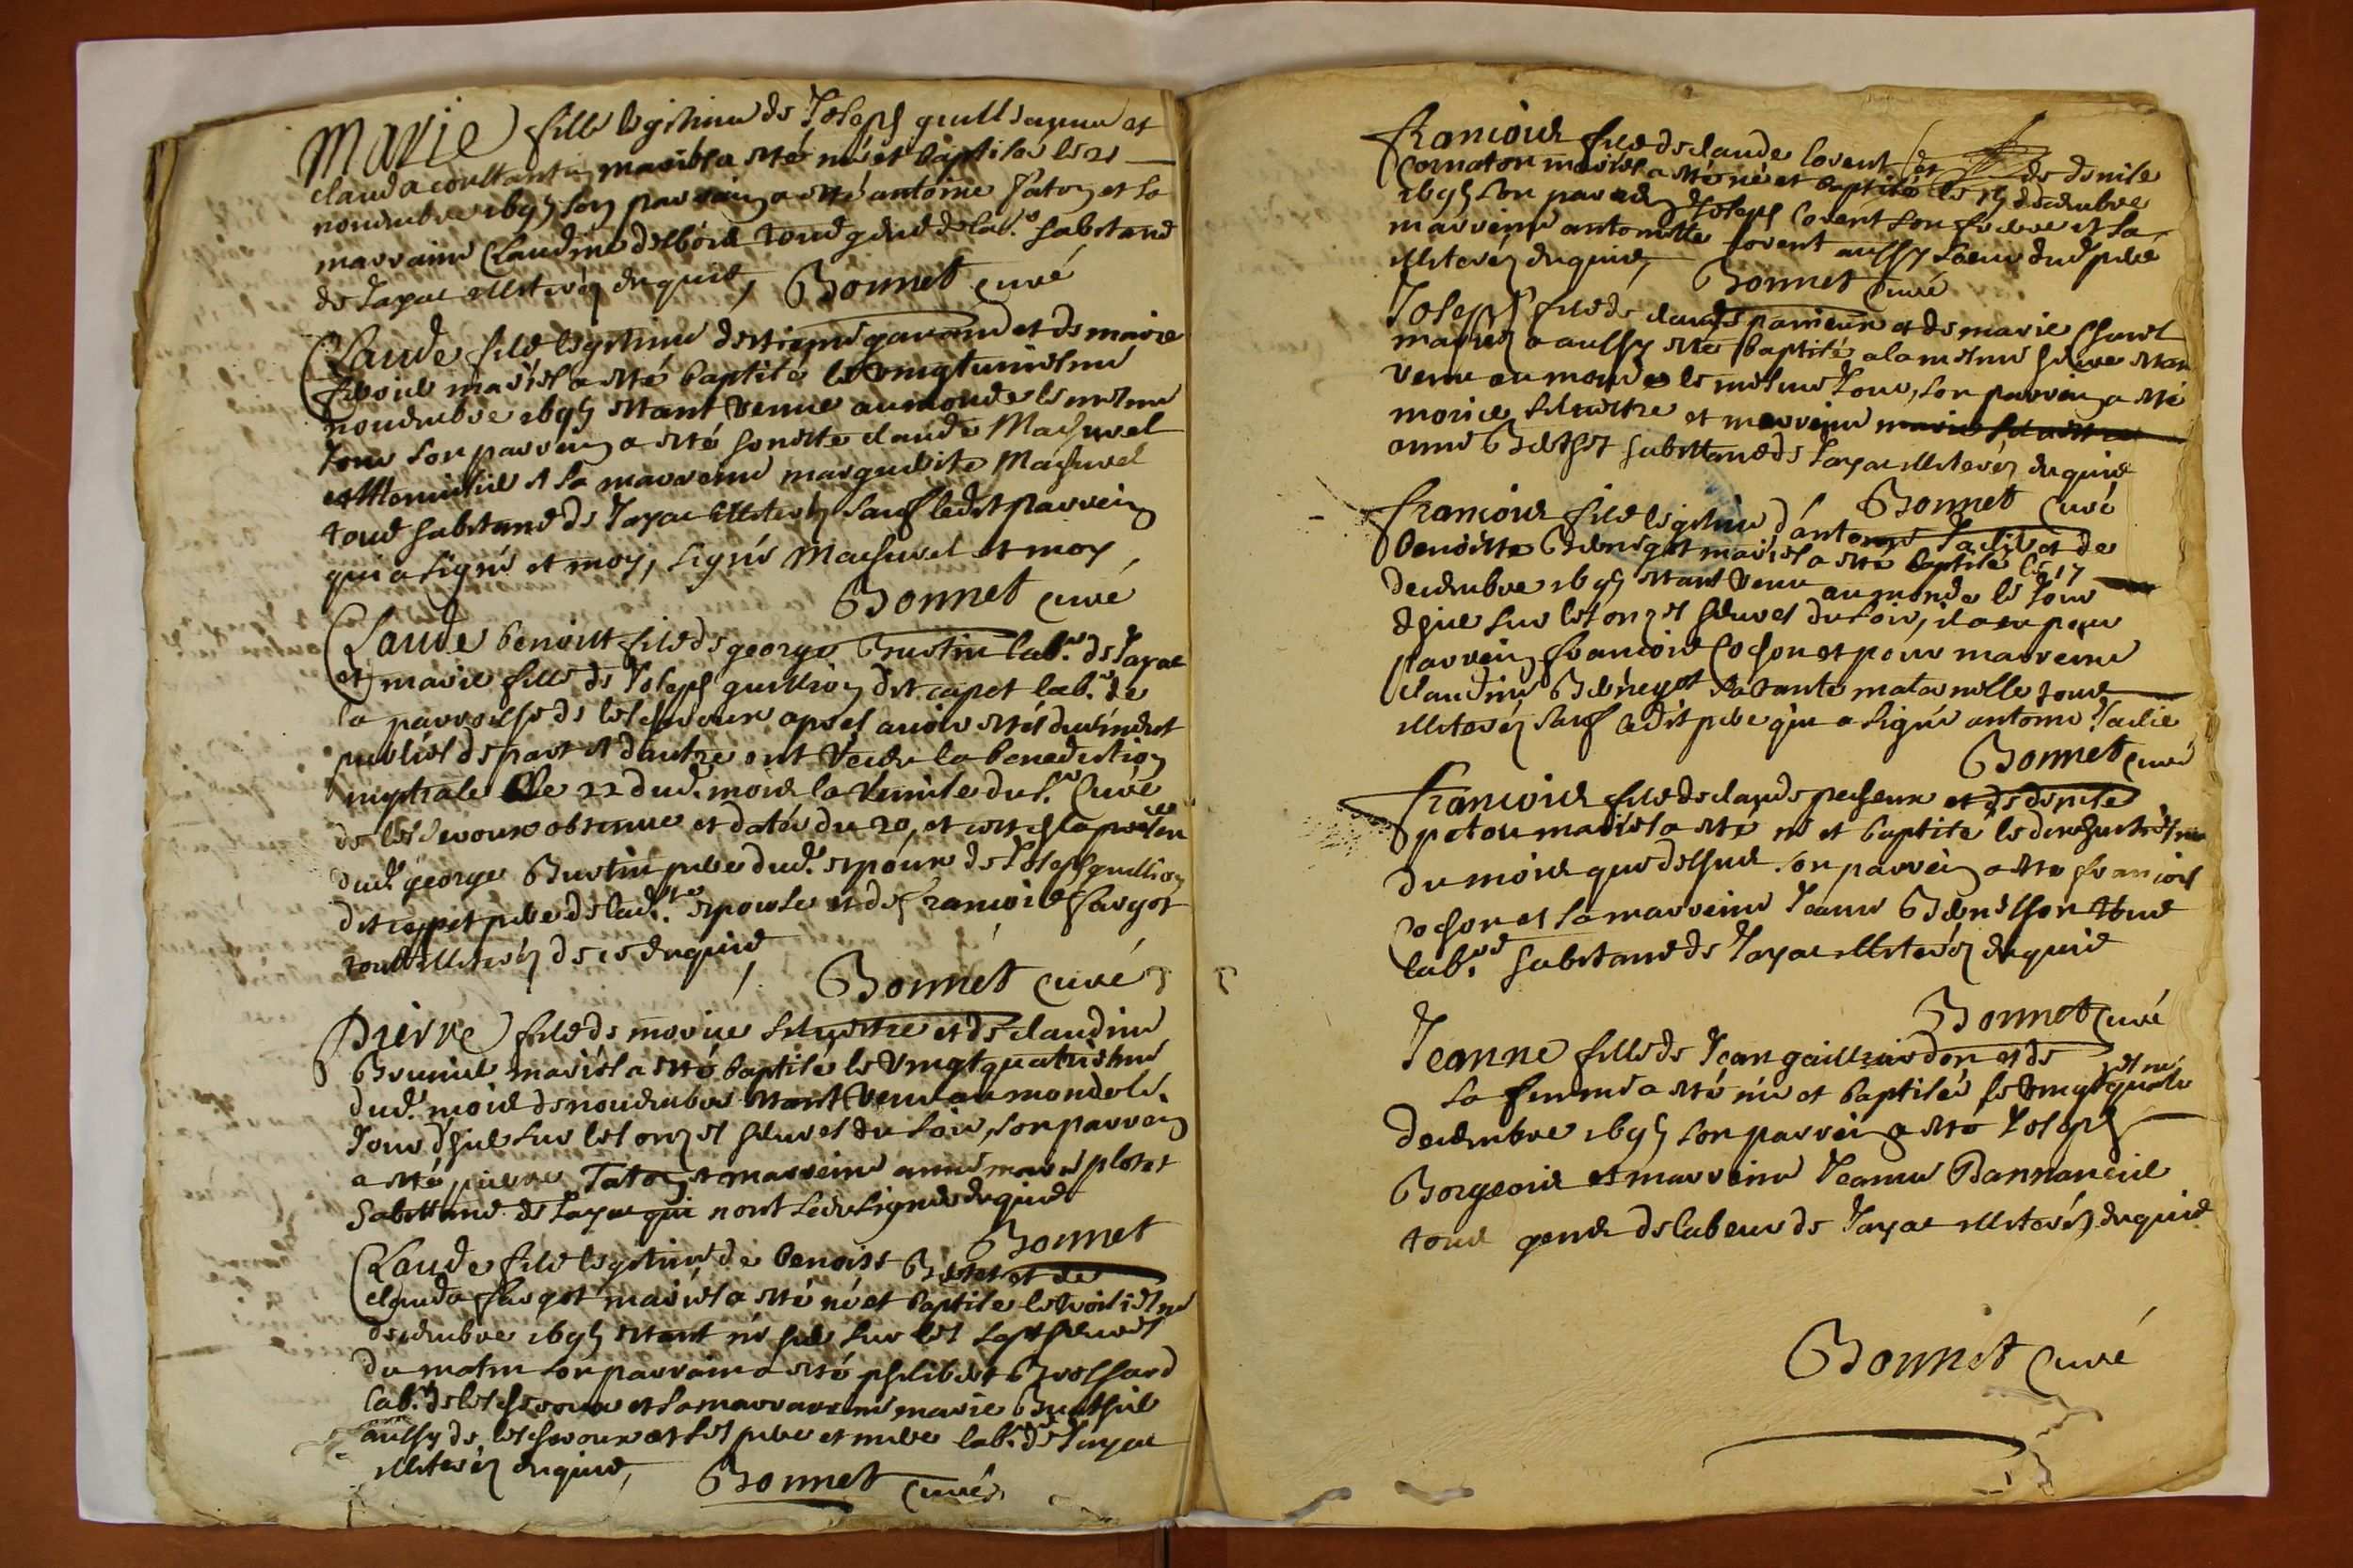 Marie fille legitime de Joseph guilliaume et
clauda constantin mariés a esté née et baptisée le 21
novembre 1695 son parrain a esté antoine Taton et sa
marraine Claudine desbois tous gens de lab.r habitans
de Jayac illiterés enquis, Bonnet curé
Claude fils legitime d'estienne et de marie
mariés a esté baptisé le vingtuniesme
novembre 1695 estant venue au monde le mesme
Jour son parrein a esté honeste claude Machurel
et la marreine marguerite Machurel
tous habitans de Jayac illiterés sauf ledit parrein
qui a signé et moy, signé Machurel et moy
Bonnet curé
Claude benoist fils de george Bustin lab.r de Jayac
et marie fille de Joseph guillion dit capet lab.r de
la parroisse de lescheroux apres avoir estés duement
publiés de part et d'autre ont receu la benediction
nuptiale le 22 dud. mois la remise du s.r Curé
de lescheroux obtenue et datée du 20, et ce en la presen
dud. george Bustin pere dud. espoux de Joseph guillion
dit capet pere de lad.te espouse et de francois fargot
tous illiterés de ce enquis
Bonnet curé
Pierre fils de morice silvestre et de claudine
mariés a esté baptisé le vingtquatriesme
dud. mois de novembre estant venu au monde le
Jour d'hier sur les onzes heures du soir, son parrein
a esté pierre Taton et marreine anne marie
habitans de Jayac qui n'ont sceu signer enquis
Bonnet
Claude fils legitime de benoist et de
clauda fargot mariés a esté né et baptisé le troisiesme
decembre 1695 estant né hier sur les sept heures
du matin son parrain a esté philibert Brossard
lab.r de lescheroux et sa marraine marie
aussy de lescheroux et ses pere et mere lab.rs de Jayac
illiterés enquis, Bonnet curé
francois fils de claude lorent et de denise
Cornaton mariés a esté né et baptisé le 15 decembre
1695 son parrein Joseph lorent son frere et sa
marreine antoinette lorent aussy soeur dud. pere
illiterés enquis, Bonnet Curé
Joseph fils de claude et de marie
mariés a aussy esté baptisé a la mesme heure estan
venu au monde le mesme Jour, son parrein a esté
morice silvestre et marreine marie silvestre
anne habitans de Jayac illiterés enquis
Bonnet Curé
francois fils legitime d'antoine Jaclie et de
benoiste mariés a esté baptisé le 17
decembre 1695 estant venu au monde le Jour
d'hier sur les onzes heures du soir, il a eu pour
parrein francois Cochon et pour marreine
claudine sa tante maternelle tous
illiterés sauf ledit pere qui a signé antoine Jaclie
Bonnet curé
francois fils de claude pecheux et de denise
mariés a esté né et baptisé le dixhuitiesme
du mois que dessus son parrein a esté francois
Cochon et sa marreine Jeanne tous
lab.rs habitans de Jayac illiterés enquis
Bonnet Curé
Jeanne fille de Jean et de
sa femme a esté née et baptisée le vingtquatriesme
decembre 1695 son parrein a esté Joseph
Borgeois et marreine Jeanne
tous gens de labeur de Jayac illiterés enquis
Bonnet Curé